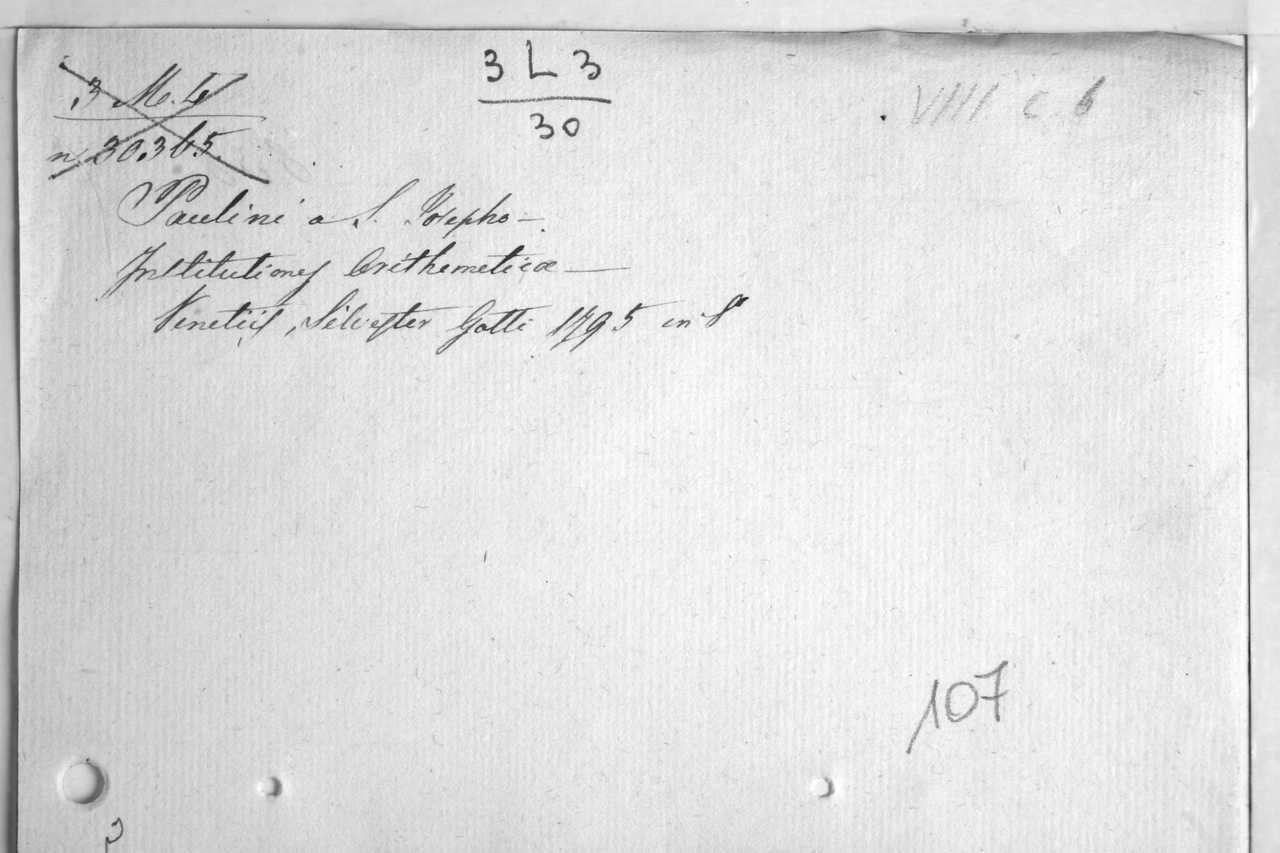 3 L 3
30
VIII C. 6
3 M. 4
n 30.365.
Paulini a S. Josepho —
Institutiones Arithemeticæ —
Venetiis, Silvester Gatti 1795 in 8°
107